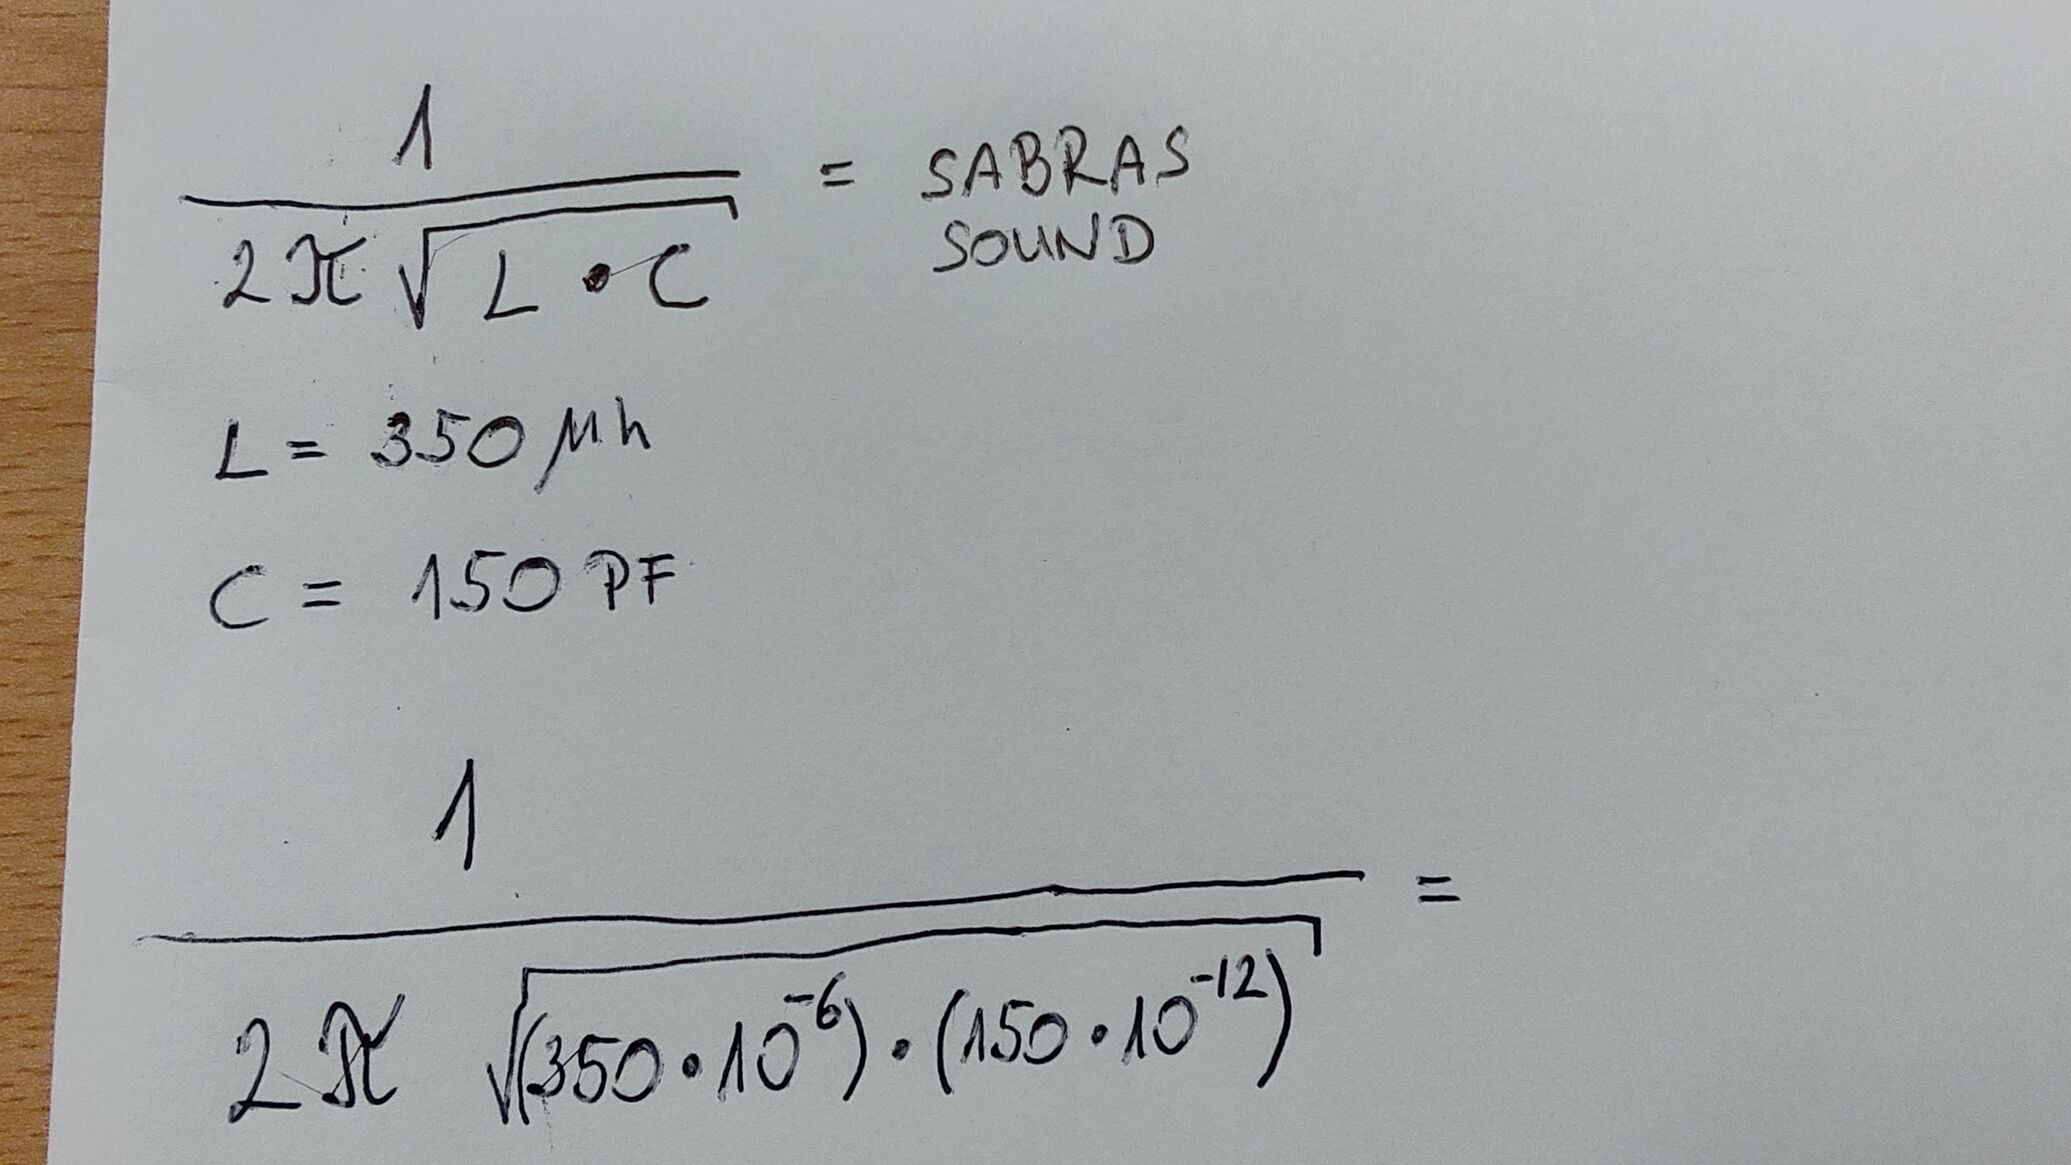 1
2π √L • C = SABRAS
SOUND
L = 350 μh
C = 150 PF
1
2π √(350 • 10⁻⁶) • (150 • 10⁻¹²) =